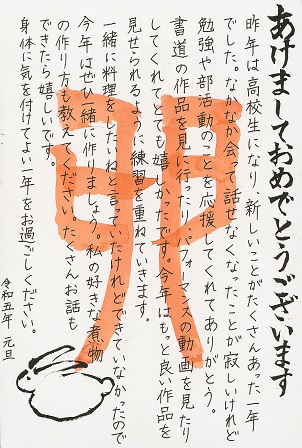 あけましておめでとうございます
昨年は高校生になり、新しいことがたくさんあった一年
でした。なかなか会って話せなくなったことが寂しいけれど
勉強や部活動のことを応援してくれてありがとう。
書道の作品を見に行ったり、パフォーマンスの動画を見たり
してくれてとても嬉しかったです。今年はもっと良い作品を
見せられるように練習を重ねていきます。
一緒に料理をしたいねと言っていたけれどできていなかったので
今年はぜひ一緒に作りましょう。私の好きな煮物
の作り方も教えてください。たくさんお話も
できたら嬉しいです。
身体に気を付けてよい一年をお過ごしください。
令和五年 元旦
卯